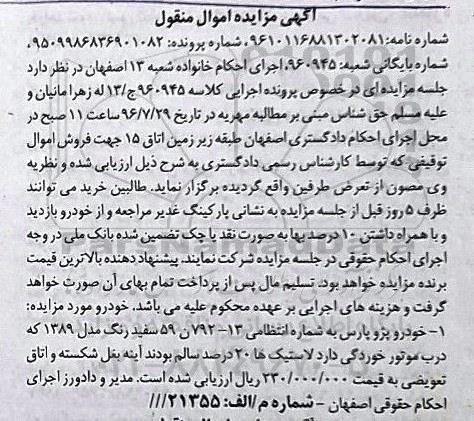 آگهی مزایده اموال منقول
شماره نامه: ۹۶۱۰۱۱۶۸۸۱۳۰۲۰۸۱، شماره پرونده: ۹۵۰۹۹۸۶۸۳۶۹۰۱۰۸۲،
شماره بایگانی شعبه: ۹۶۰۹۴۵، اجرای احکام خانواده شعبه ۱۳ اصفهان در نظر دارد
جلسه مزایده ای در خصوص پرونده اجرایی کلاسه ۹۶۰۹۴۵ج/۱۳ له زهرا مانیان و
علیه مسلم حق شناس مبنی بر مطالبه مهریه در تاریخ ۹۶/۷/۲۹ ساعت ۱۱ صبح در
محل اجرای احکام دادگستری اصفهان طبقه زیر زمین اتاق ۱۵ جهت فروش اموال
توقیفی که توسط کارشناس رسمی دادگستری به شرح ذیل ارزیابی شده و نظریه
وی مصون از تعرض طرفین واقع گردیده برگزار نماید. طالبین خرید می توانند
ظرف ۵ روز قبل از جلسه مزایده به نشانی پارکینگ غدیر مراجعه و از خودرو بازدید
و با همراه داشتن ۱۰ درصد بها به صورت نقد یا چک تضمین شده بانک ملی در وجه
اجرای احکام حقوقی در جلسه مزایده شرکت نمایند. پیشنهاد دهنده بالاترین قیمت
برنده مزایده خواهد بود. تسلیم مال پس از پرداخت تمام بهای آن صورت خواهد
گرفت و هزینه های اجرایی بر عهده محکوم علیه می باشد. خودرو مورد مزایده:
۱- خودرو پژو پارس به شماره انتظامی ۱۳-۷۹۲ ن ۵۹ سفید رنگ مدل ۱۳۸۹ که
درب موتور خوردگی دارد لاستیک ها ۲۰ درصد سالم بودند آینه بغل شکسته و اتاق
تعویضی به قیمت ۲۳۰/۰۰۰/۰۰۰ ریال ارزیابی شده است. مدیر و دادورز اجرای
احکام حقوقی اصفهان - شماره م/الف: ۲۱۳۵۵///